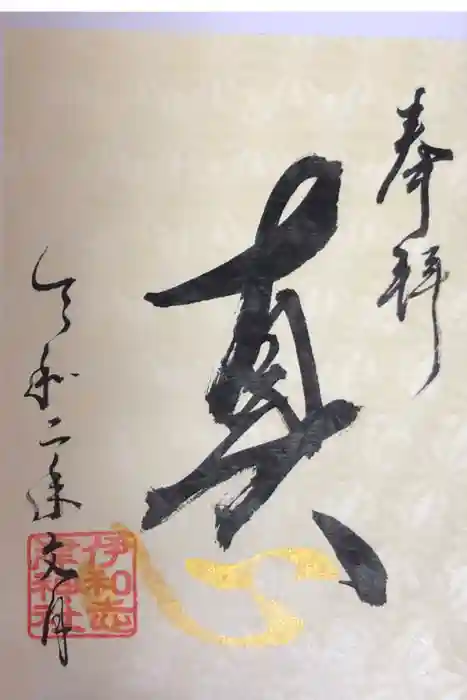 奉拝
真
心
令和二年文月
伊和志
津神社